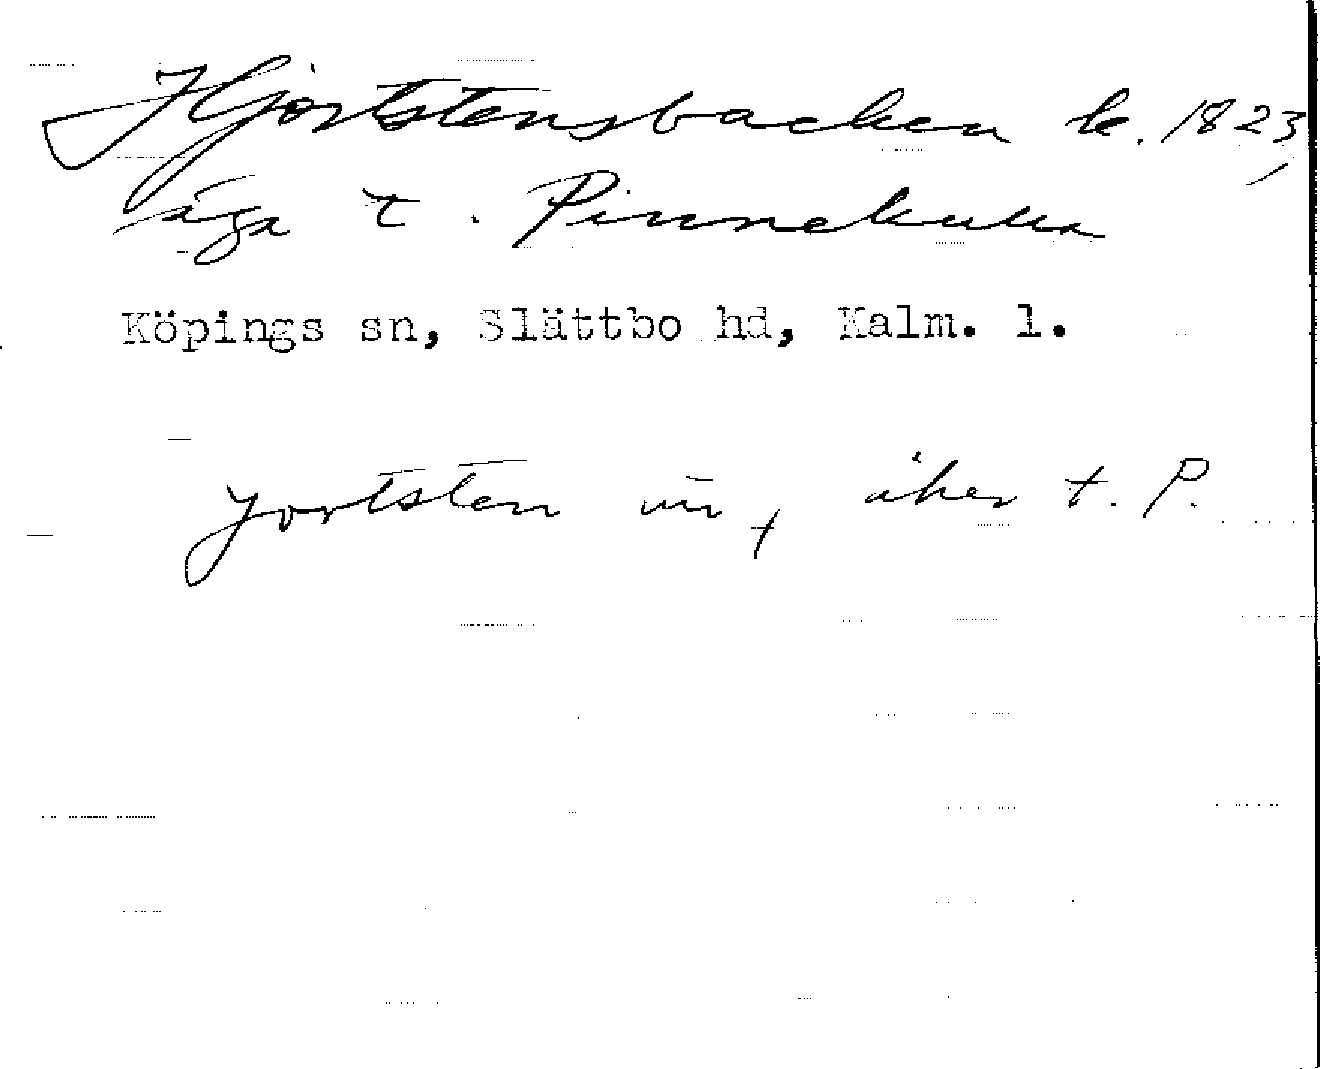 Hjortstensbacken k. 1823,
äga t. Pinnekulla
Köpings sn, Slättbo hd, Kalm. l.
jortsten , åker t. P.